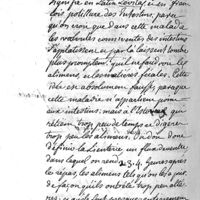 signifie en Latin Lævitas, et en fran-
cois polissure des Intestins, parce
qu'on tient que dans cette maladie
les velouté consistantes des intestins
s'aplatissent et par la laissent tomber
plus promptement qu'il ne faudroit les
alimens, et les matieres fecales. Cette
idée est absolument fausse parceque
cette maladie n'appartient point
aux intestins, mais à l'Estomac qui
retient trop peu de temps et digere
trop peu les alimens. On doit donc
définir la Lienterie, un flux de ventre
dans lequel on rend 2. 3. 4. heures apres
le repas, les alimens tels qu'on les a pris,
de façon qu'ils ont été trop peu alte-
rés, et qu'ils sont presque entierement